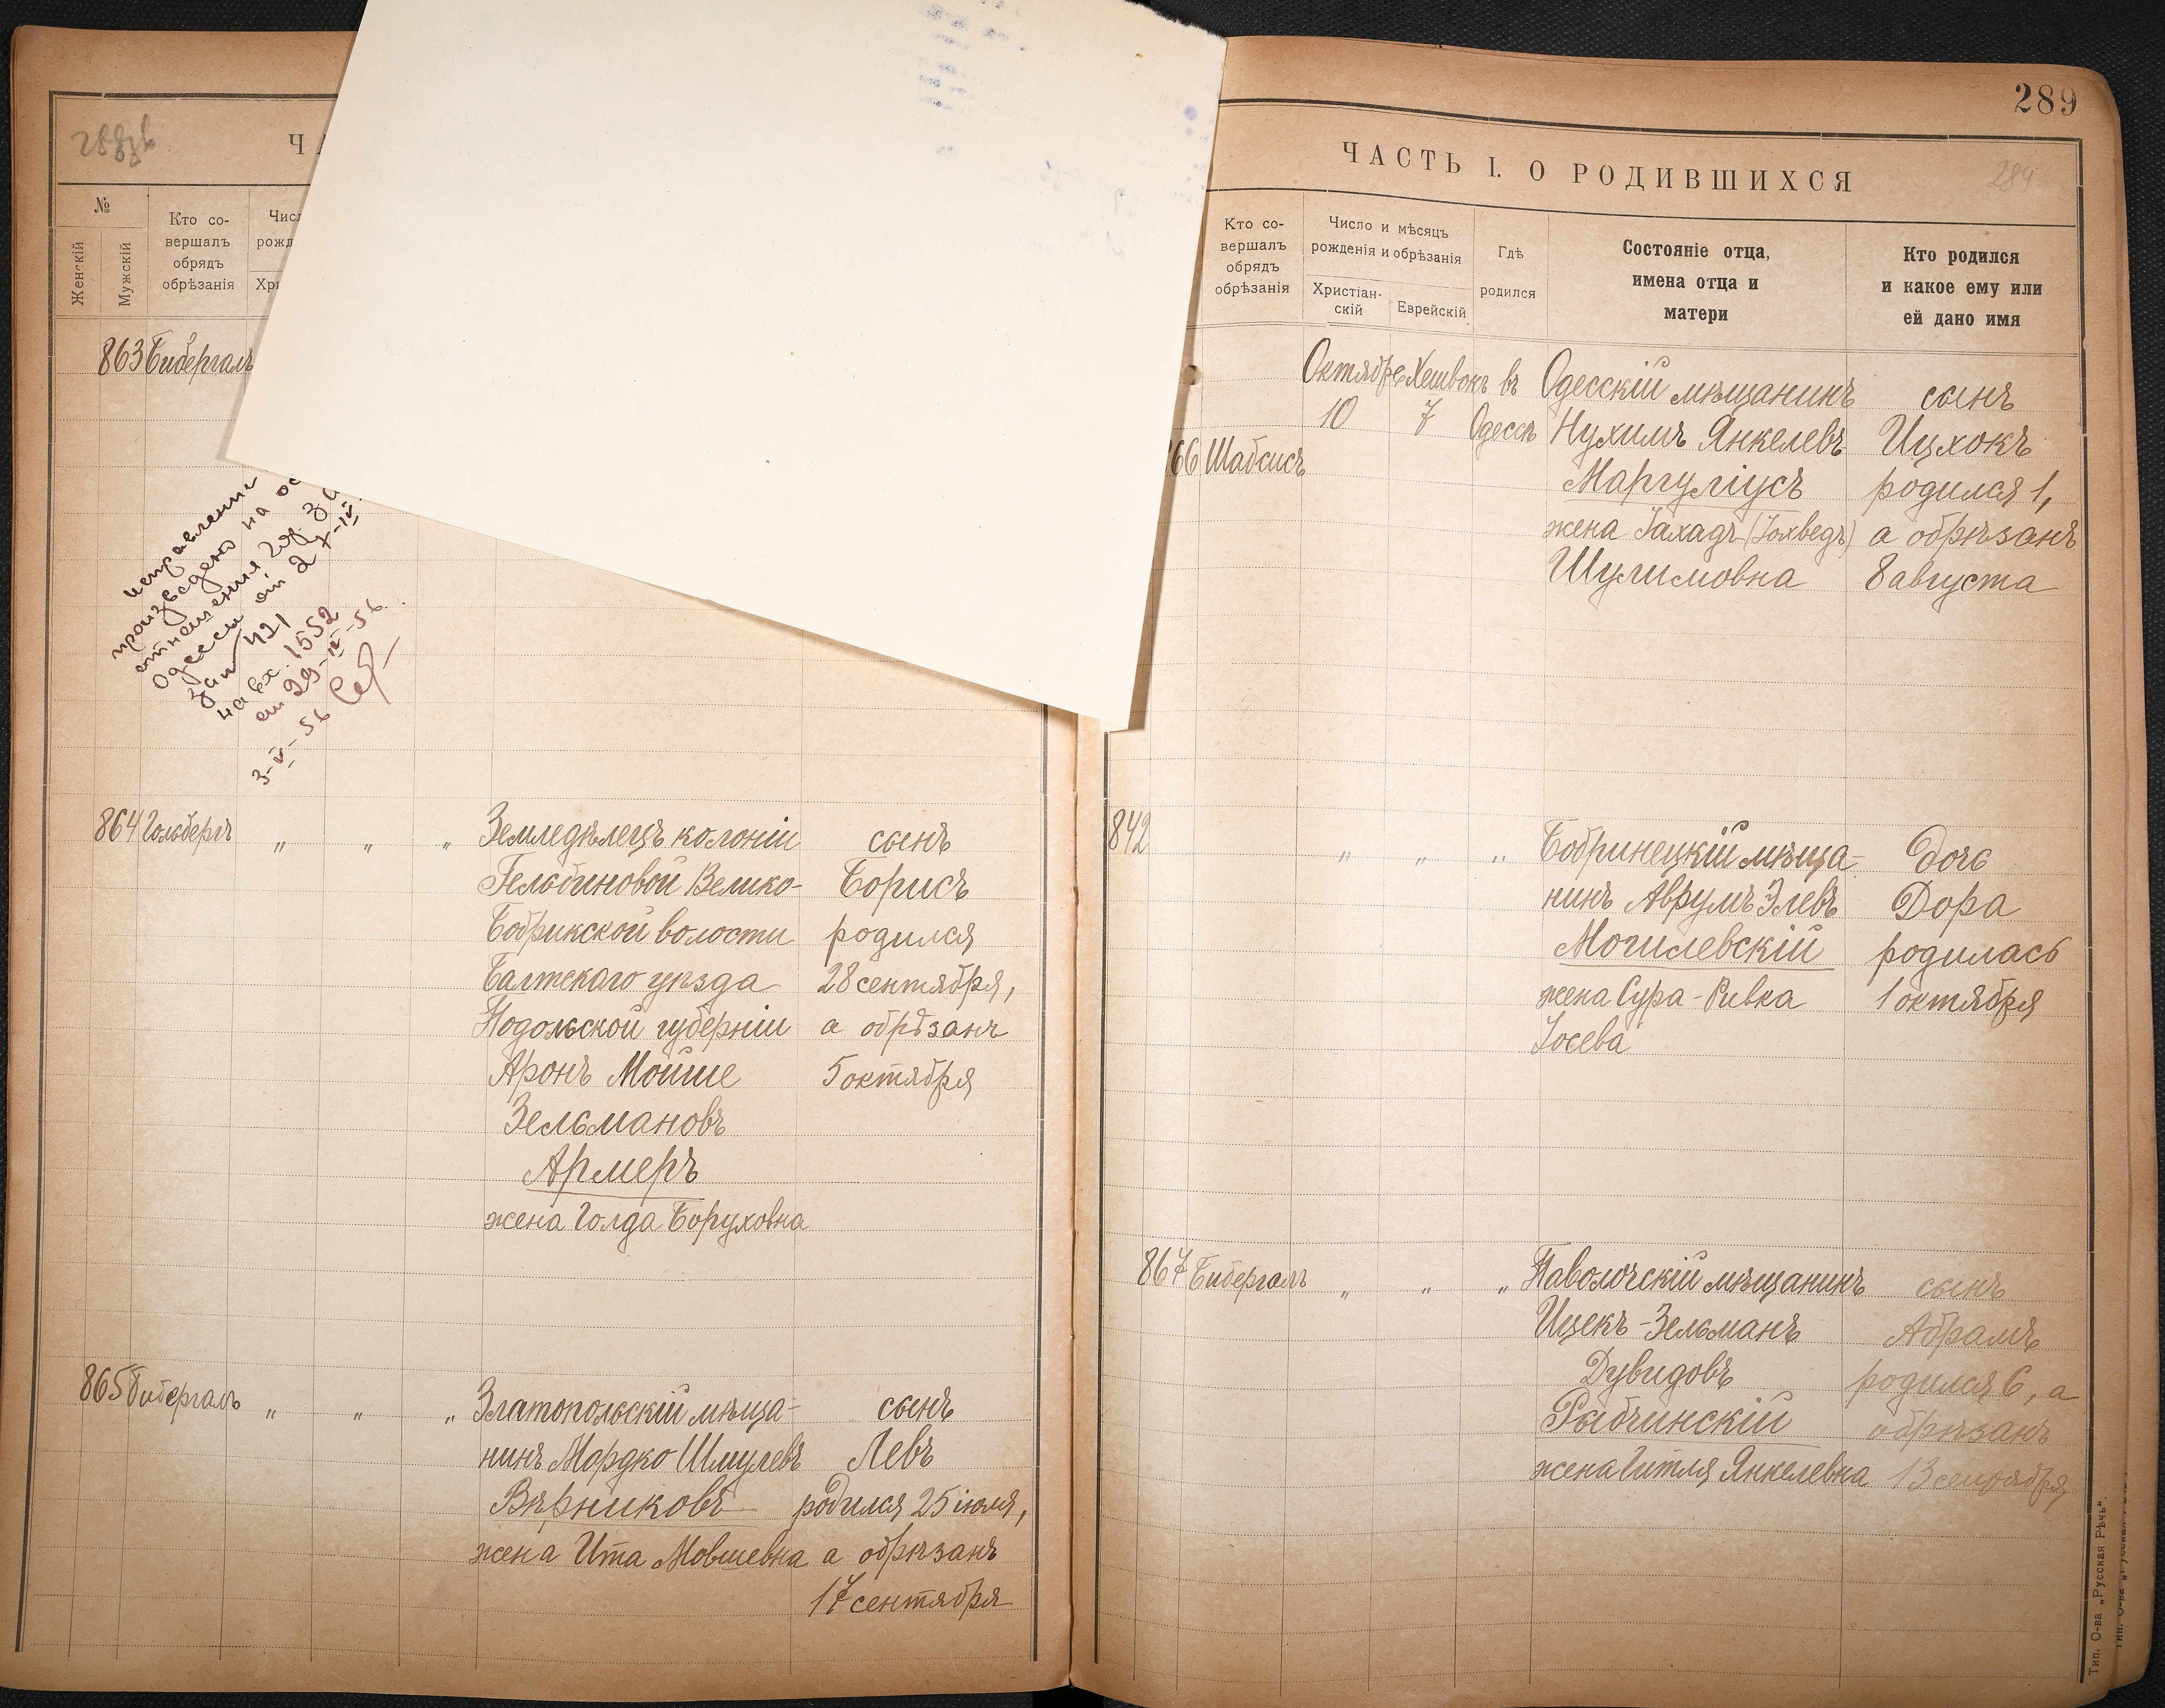 288об
№
Женскій
Мужскій
Кто со-
вершалъ
обрядъ
обрѣзанія
863 Бибергалъ
исправление
произведено на
отношения
Одессы от 27-IV
за № 421
на вх. 1552
от 29-IV-56
3-V-56
864 Гольбергъ " " " Земледѣлецъ колоніи сынъ
Гельбиновой Велико- Борисъ
Бобрикской волости родился
Балтскаго уѣзда 28 сентября,
Подольской губерніи а обрѣзанъ
Аронъ Мойше 5 октября
Зельмановъ
Армеръ
жена Голда Боруховна
865 Бибергалъ " " " Златопольскій мѣща- сынъ
нинъ Мордко Шмулевъ Левъ
Вѣрниковъ родился 25 іюля,
жена Ита Мовшевна а обрѣзанъ
17 сентября
289
ЧАСТЬ I. О РОДИВШИХСЯ
289
Кто со-
вершалъ
обрядъ
обрѣзанія
Число и мѣсяцъ
рожденія и обрѣзанія
Христіан-
скій
Еврейскій
Гдѣ
родился
Состояніе отца,
имена отца и
матери
Кто родился
и какое ему или
ей дано имя
Октябрь Хешвонъ въ Одесскій мѣщанинъ сынъ
10 7 Одессѣ Нухимъ Янкелевъ Ицхокъ
66 Шабсисъ Маргуліусъ родился 1,
жена Іахадъ (Іохведъ) а обрѣзанъ
Шулимовна 8 августа
842 " " " Бобринецкій мѣща- дочь
нинъ Аврумъ Элевъ Дора
Могилевскій родилась
жена Сура-Ривка 1 октября
Іосева
867 Бибергалъ " " " Паволочскій мѣщанинъ сынъ
Ицекъ-Зельманъ Абрамъ
Дувидовъ родился 6, а
Рыбчинскій обрѣзанъ
жена Гитля Янкелевна 13 сентября
Тип. О-ва „Русская Рѣчь“.